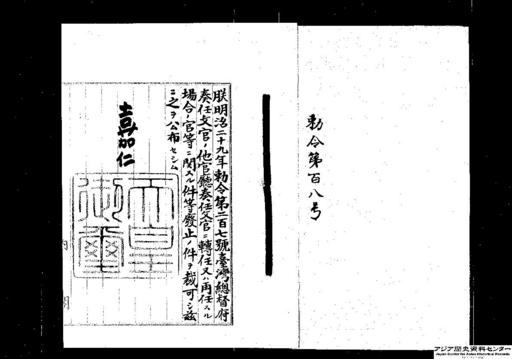 勅令第百八号
朕明治二十九年勅令第二百七號臺灣總督府
奏任文官ノ他官廳奏任文官ニ轉任又ハ兩任スル
場合ノ官等ニ関スル件等廢止ノ件ヲ裁可シ茲
ニ之ヲ公布セシム
嘉仁
天皇
御璽
アジア歴史資料センター
Japan Center for Asian Historical Records